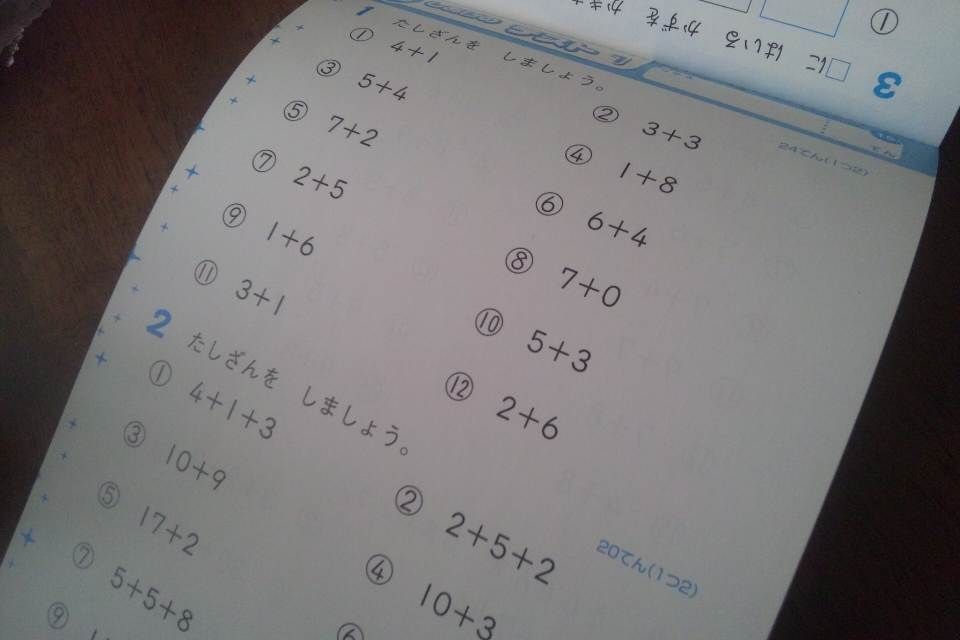 3 □に はいる かずを かき
①
1 たしざんを しましょう。
24てん(1つ2)
① 4+1
② 3+3
③ 5+4
④ 1+8
⑤ 7+2
⑥ 6+4
⑦ 2+5
⑧ 7+0
⑨ 1+6
⑩ 5+3
⑪ 3+1
⑫ 2+6
2 たしざんを しましょう。
20てん(1つ2)
① 4+1+3
② 2+5+2
③ 10+9
④ 10+3
⑤ 17+2
⑥
⑦ 5+5+8
⑨